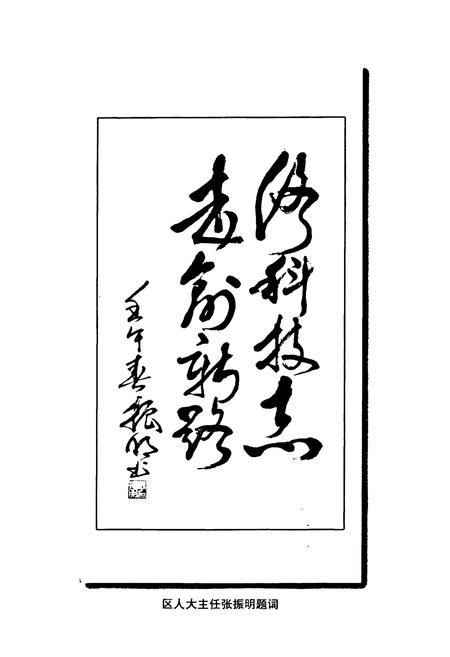 修科技志
走创新路
壬午春振明书
区人大主任张振明题词